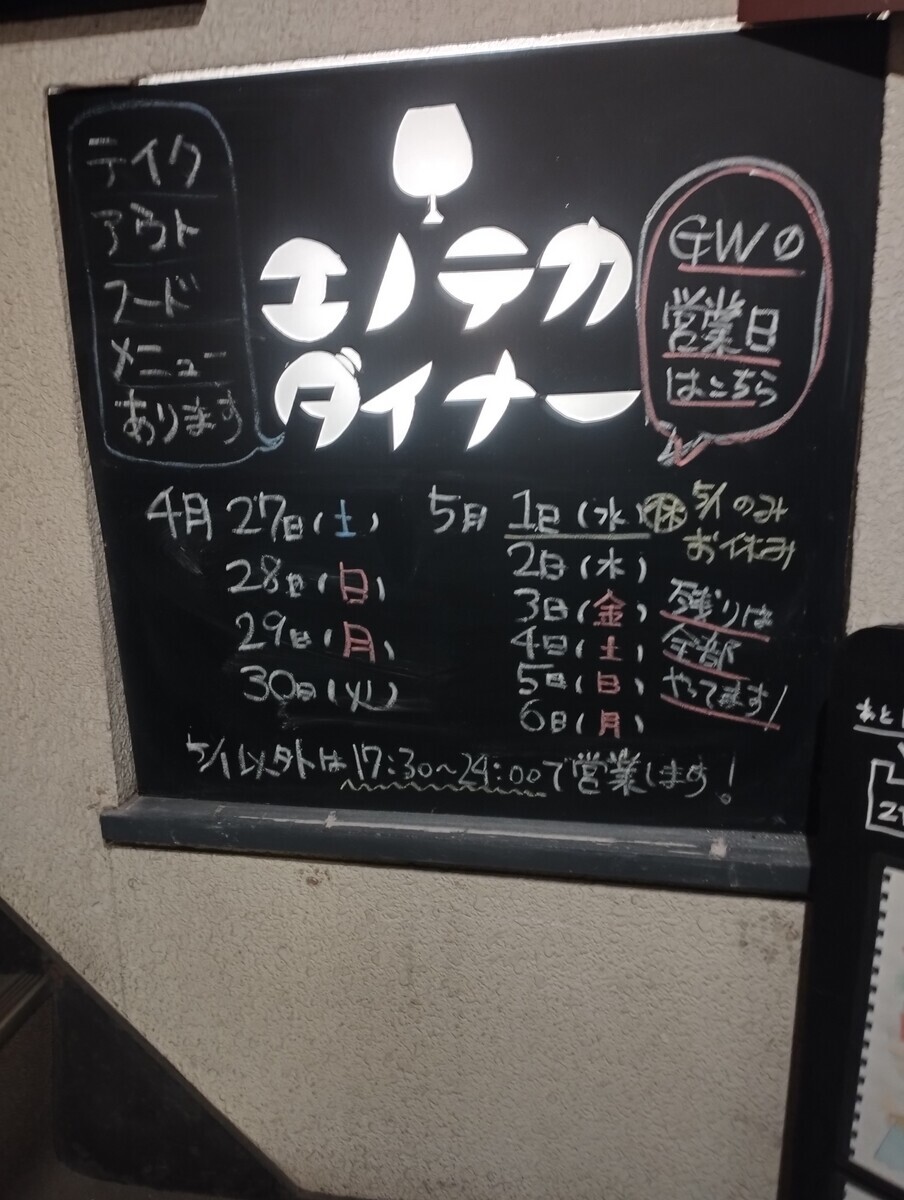 テイク
アウト
フード
メニュー
あります
エノテカ
ダイナー
GWの
営業日
はこちら
4月 27日(土)
28日(日)
29日(月)
30日(火)
5月 1日(水) 休 5/1のみ
お休み
2日(木)
3日(金)
4日(土)
5日(日)
6日(月)
残りは
全部
やってます!
5/1以外は17:30~24:00で営業します!